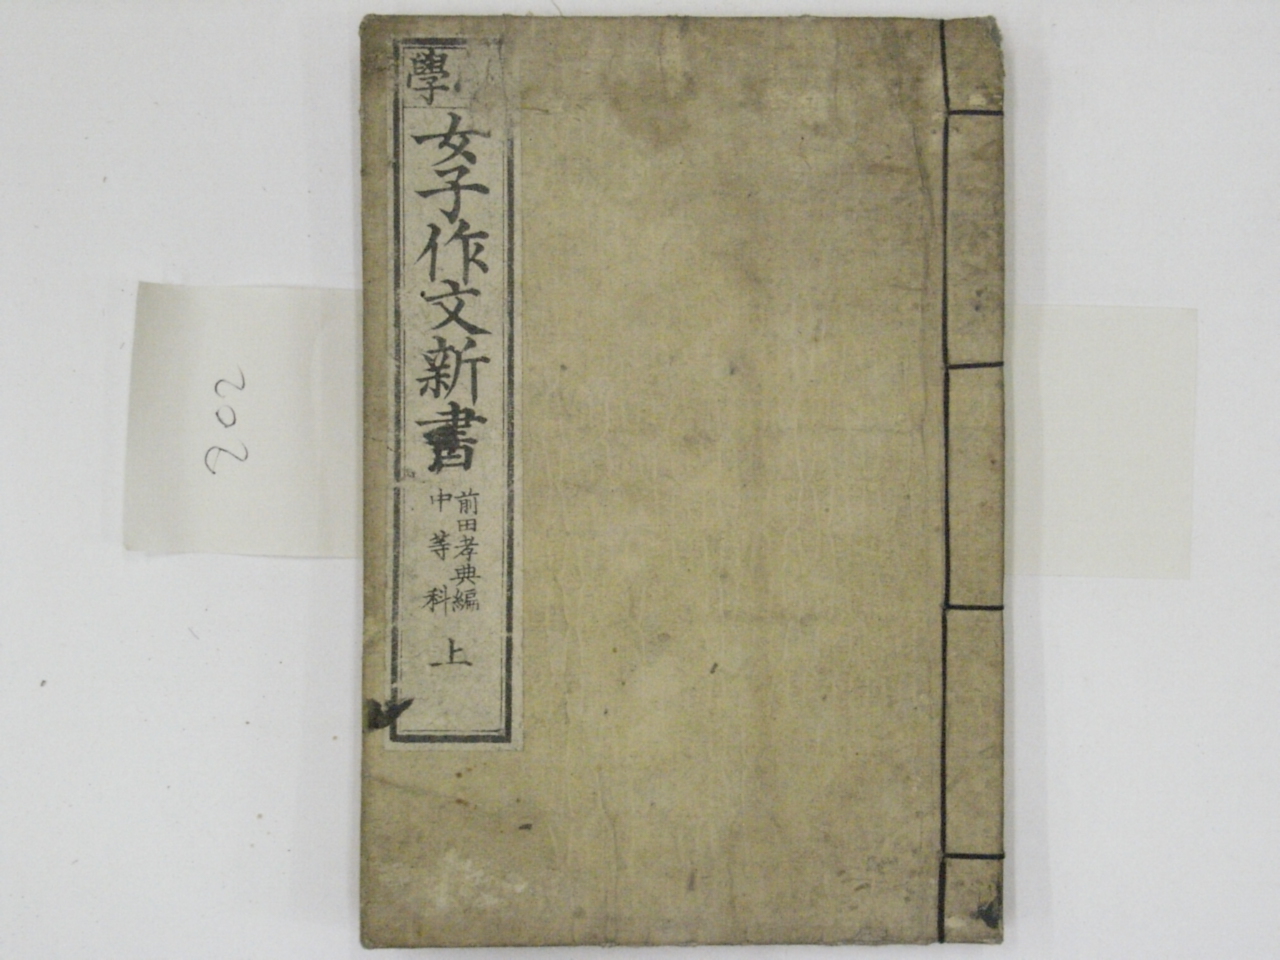 學
女子作文新書
前田孝典編
中等科
上
202